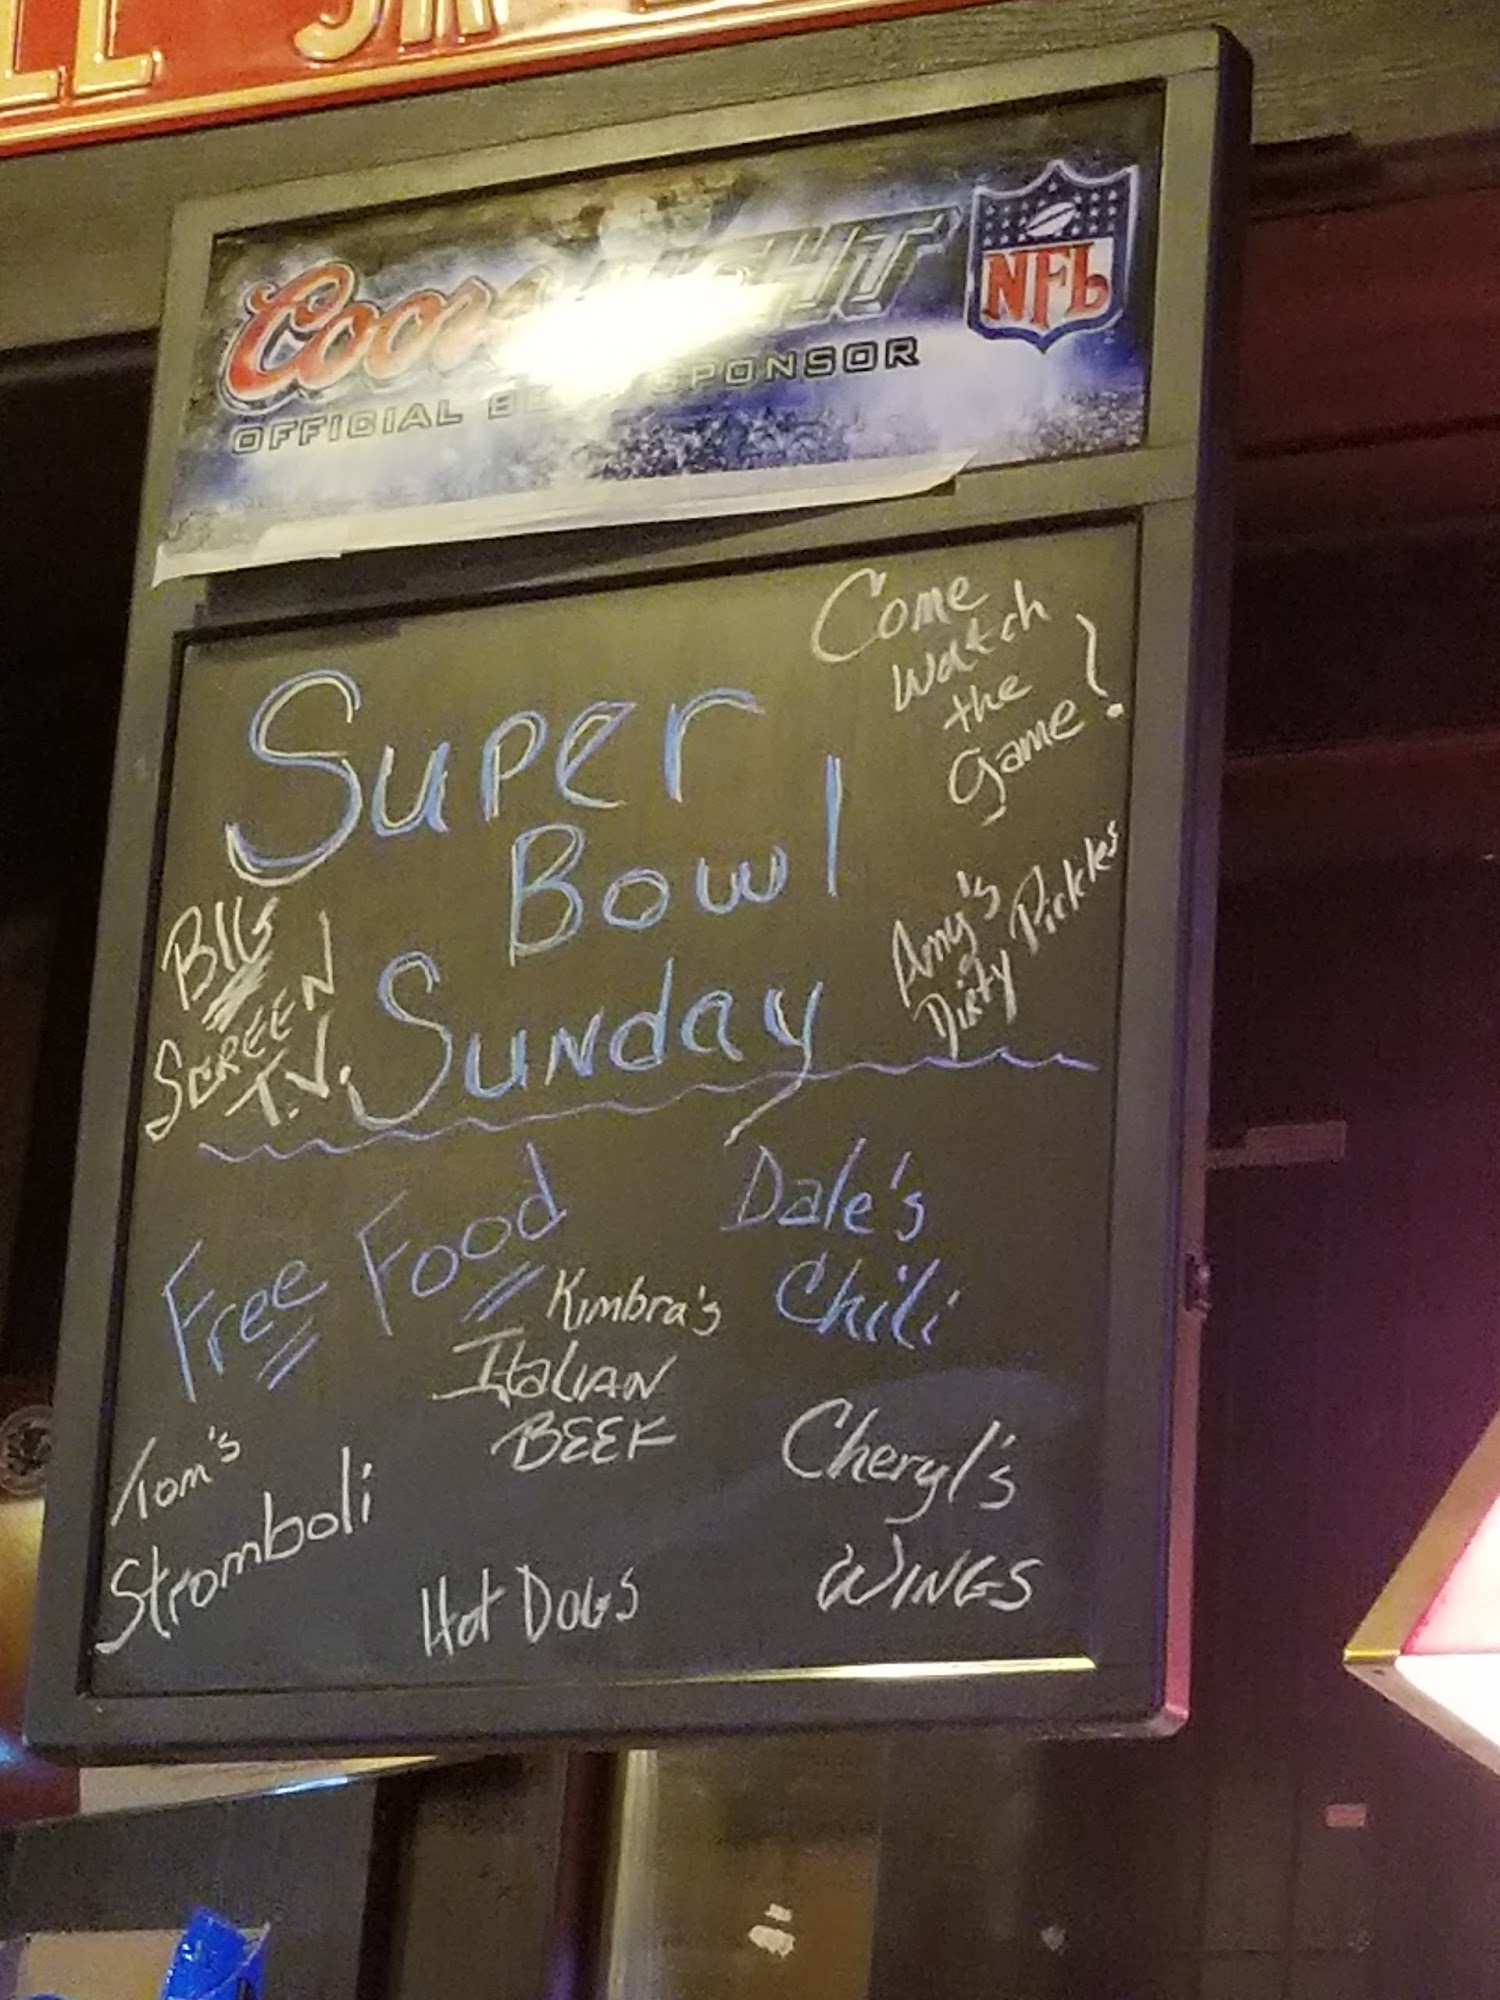 Coors LIGHT
OFFICIAL BEER SPONSOR
NFL
Come
Watch
the
Game!
Super
Bowl
Sunday
BIG
SCREEN
T.V.
Amy's
Dirty Pickles
Free Food
Dale's
Chili
Kimbra's
ItaLIAN
BEEF
Tom's
Stromboli
Cheryl's
WINGS
Hot DOGS